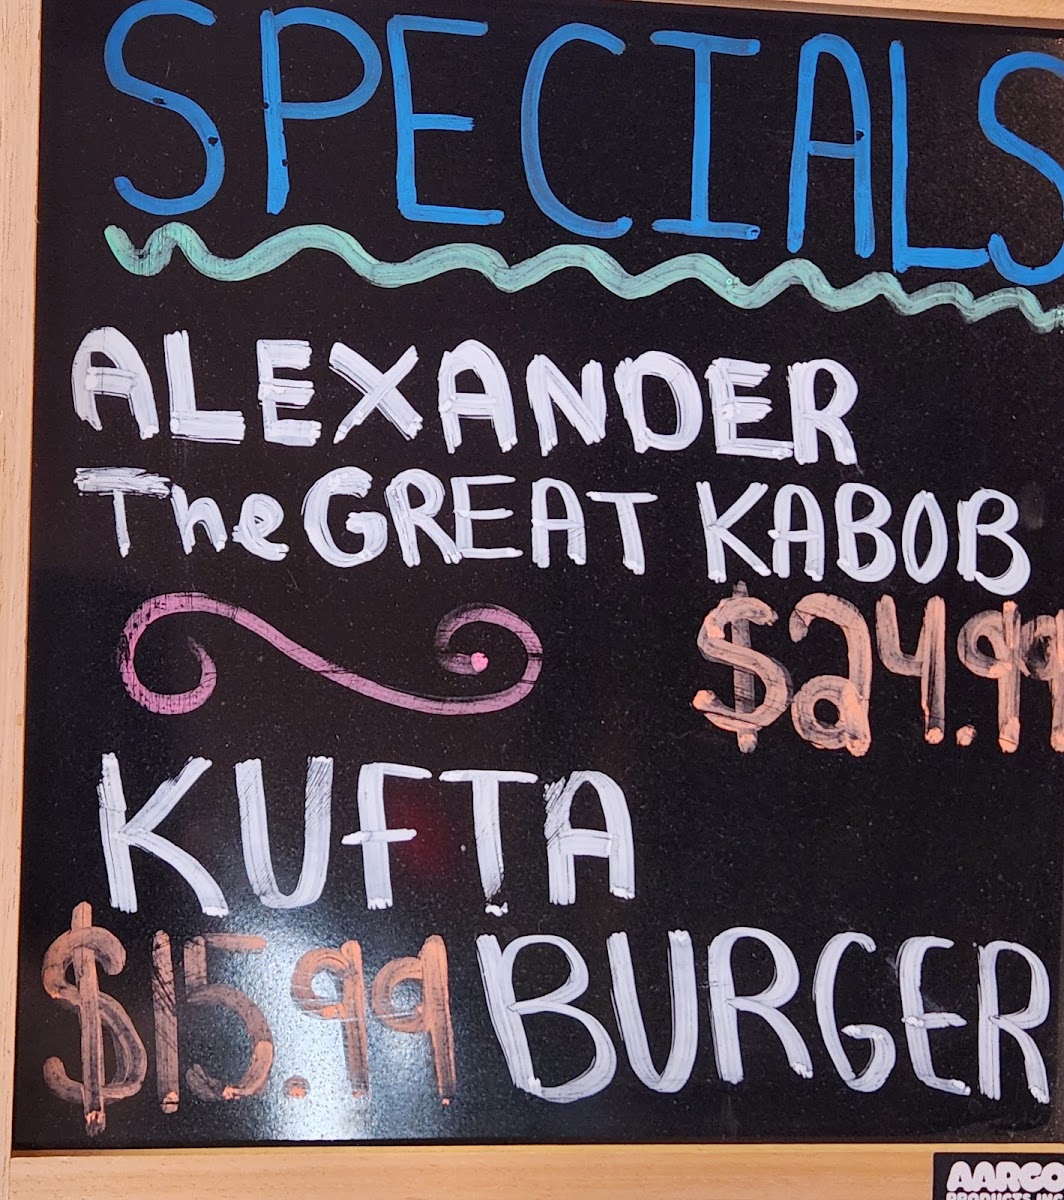 SPECIALS
ALEXANDER
The GREAT KABOB
$24.99
KUFTA
$15.99 BURGER
AARCO
PRODUCTS INC